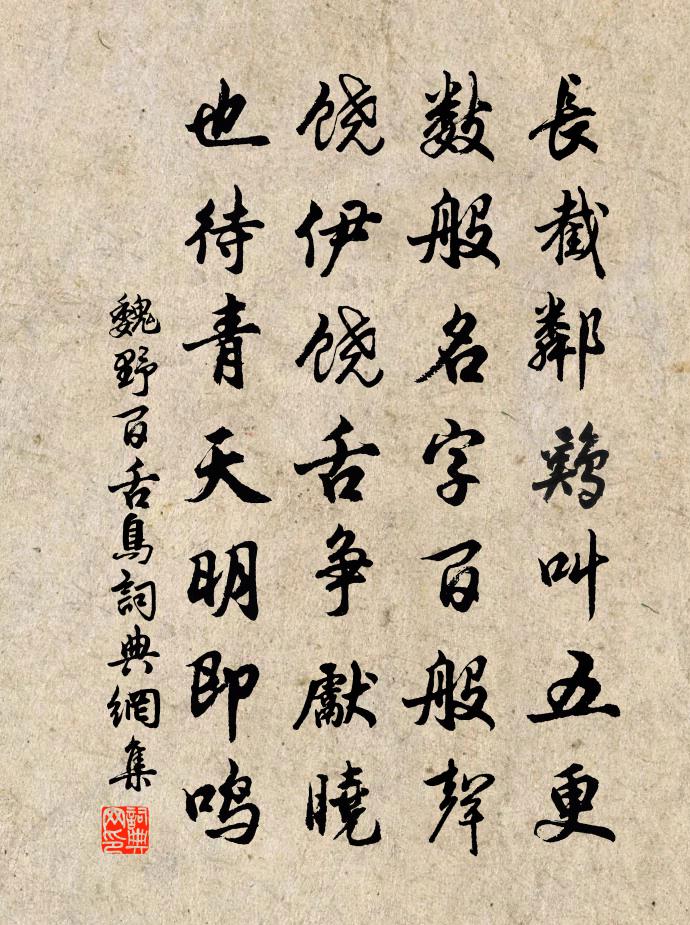 長截鄰鷄叫五更
数般名字百般聲
饶伊饶舌争獻曉
也待青天明即鸣
魏野百舌鳥詞典網集
詞典网印